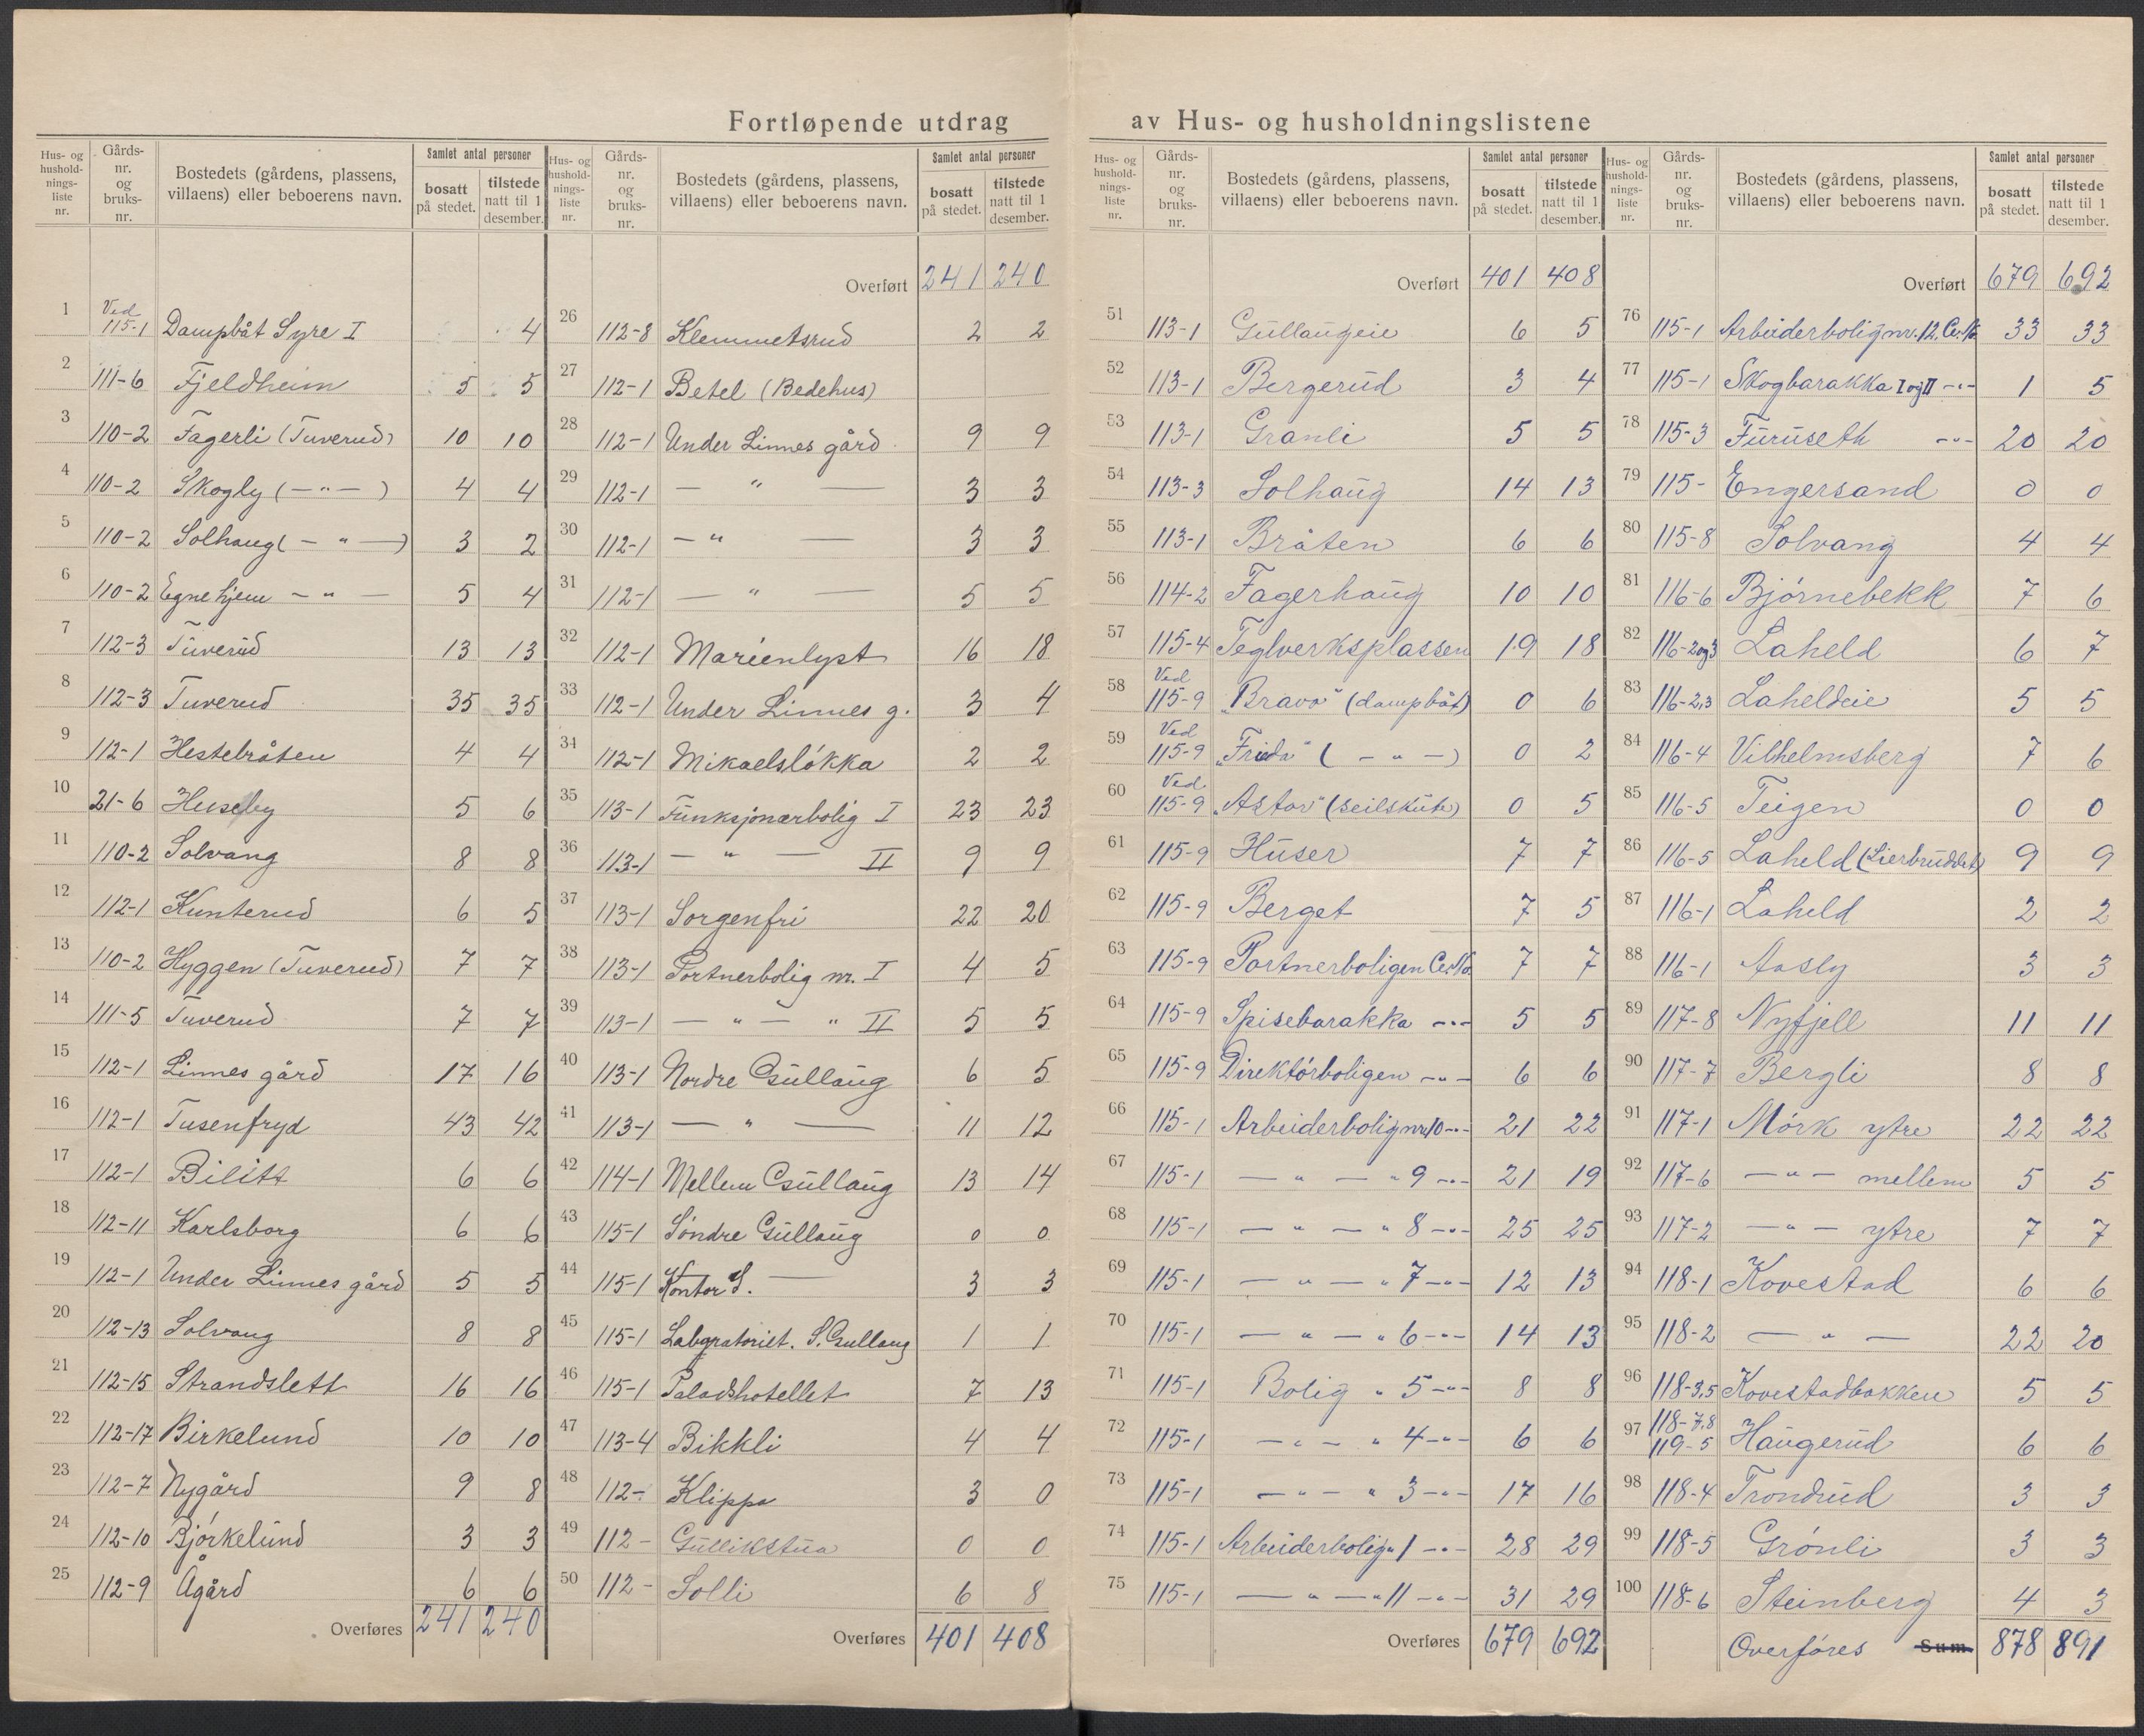 Fortløpende utdrag av Hus- og husholdningslistene
Hus- og husholdningsliste nr. | Gårdsnr. og bruksnr. | Bostedets (gårdens, plassens, villaens) eller beboerens navn. | Samlet antal personer bosatt på stedet. | tilstede natt til 1 desember.
1 Ved 115-1 Dampbåt Syre I 4
2 111-6 Fjeldheim 5 5
3 110-2 Fagerli (Tuverud) 10 10
4 110-2 Skogly (—"—) 4 4
5 110-2 Solhaug (— " —) 3 2
6 110-2 Egnehjem — " — 5 4
7 112-3 Tuverud 13 13
8 112-3 Tuverud 35 35
9 112-1 Hestebråten 4 4
10 21-6 Huseby 5 6
11 110-2 Solvang 8 8
12 112-1 Kunterud 6 5
13 110-2 Hyggen (Tuverud) 7 7
14 111-5 Tuverud 7 7
15 112-1 Linnes gård 17 16
16 112-1 Tusenfryd 43 42
17 112-1 Bilitt 6 6
18 112-11 Karlsborg 6 6
19 112-1 Under Linnes gård 5 5
20 112-13 Solvang 8 8
21 112-15 Strandslett 16 16
22 112-17 Birkelund 10 10
23 112-7 Nygård 9 8
24 112-10 Bjørkelund 3 3
25 112-9 Ågård 6 6
Overføres 241 240
Hus- og husholdningsliste nr. | Gårdsnr. og bruksnr. | Bostedets (gårdens, plassens, villaens) eller beboerens navn. | Samlet antal personer bosatt på stedet. | tilstede natt til 1 desember.
Overført 241 240
26 112-8 Klemmetsrud 2 2
27 112-1 Betel (Bedehus)
28 112-1 Under Linnes gård 9 9
29 112-1 — " — 3 3
30 112-1 — " — 3 3
31 112-1 — " — 5 5
32 112-1 Marienlyst 16 18
33 112-1 Under Linnes g. 3 4
34 112-1 Mikaelsløkka 2 2
35 113-1 Funksjonærbolig I 23 23
36 113-1 — " — II 9 9
37 113-1 Sorgenfri 22 20
38 113-1 Portnerbolig nr. I 4 5
39 113-1 — " — " II 5 5
40 113-1 Nordre Gullaug 6 5
41 113-1 — " — 11 12
42 114-1 Mellem Gullaug 13 14
43 115-1 Søndre Gullaug 0 0
44 115-1 Kontor S. — 3 3
45 115-1 Laboratoriet. S. Gullaug 1 1
46 115-1 Paladshotellet 7 13
47 113-4 Bikkli 4 4
48 112- Klippa 3 0
49 112- Gullikstua 0 0
50 112- Solli 6 8
Overføres 401 408
Hus- og husholdningsliste nr. | Gårdsnr. og bruksnr. | Bostedets (gårdens, plassens, villaens) eller beboerens navn. | Samlet antal personer bosatt på stedet. | tilstede natt til 1 desember.
Overført 401 408
51 113-1 Gullaugeie 6 5
52 113-1 Bergerud 3 4
53 113-1 Granli 5 5
54 113-3 Solhaug 14 13
55 113-1 Bråten 6 6
56 114-2 Fagerhaug 10 10
57 115-4 Teglverksplassen 19 18
58 Ved 115-9 "Bravo" (dampbåt) 0 6
59 Ved 115-9 "Frida" (— " —) 0 2
60 Ved 115-9 "Astor" (seilskute) 0 5
61 115-9 Huser 7 7
62 115-9 Berget 7 5
63 115-9 Portnerboligen 7 7
64 115-9 Spisebarakka -"- 5 5
65 115-9 Direktørboligen -"- 6 6
66 115-1 Arbeiderbolig nr 10 -"- 21 22
67 115-1 — " — " 9 -"- 21 19
68 115-1 — " — " 8 -"- 25 25
69 115-1 — " — " 7 -"- 12 13
70 115-1 — " — " 6 -"- 14 13
71 115-1 Bolig " 5 -"- 8 8
72 115-1 — " — " 4 -"- 6 6
73 115-1 — " — " 3 -"- 17 16
74 115-1 Arbeiderbolig " 1 -"- 28 29
75 115-1 — " — " 11 -"- 31 29
Overføres 679 692
Hus- og husholdningsliste nr. | Gårdsnr. og bruksnr. | Bostedets (gårdens, plassens, villaens) eller beboerens navn. | Samlet antal personer bosatt på stedet. | tilstede natt til 1 desember.
Overført 679 692
76 115-1 Arbeiderbolig nr. 12. 33 33
77 115-1 Skogbarakka I og II -"- 1 5
78 115-3 Furuseth -"- 20 20
79 115- Engersand 0 0
80 115-8 Solvang 4 4
81 116-6 Bjørnebekk 7 6
82 116-2og3 Laheld 6 7
83 116-2,3 Laheldeie 5 5
84 116-4 Vilhelmsberg 7 6
85 116-5 Teigen 0 0
86 116-5 Laheld (Lierbruddet) 9 9
87 116-1 Laheld 2 2
88 116-1 Aasly 3 3
89 117-8 Nyfjell 11 11
90 117-7 Bergli 8 8
91 117-1 Mørk ytre 22 22
92 117-6 — " — mellem 5 5
93 117-2 — " — ytre 7 7
94 118-1 Kovestad 6 6
95 118-2 — " — 22 20
96 118-3,5 Kovestadbakken 5 5
97 118-7,8 119-5 Haugerud 6 6
98 118-4 Trondrud 3 3
99 118-5 Grønli 3 3
100 118-6 Steinberg 4 3
Overføres Sum 878 891